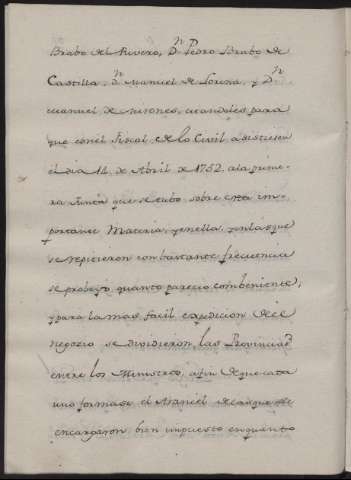 Brabo del Rivero, Dn. Pedro Brabo de
Castilla, Dn. Manuel de Lorena, y Dn.
Manuel de Mirones, citandoles para
que con el Fiscal de lo Civil asistiesen
el dia 14 de Abril de 1752 a la prime-
ra Junta que se tubo sobre esta im-
portante Materia, y en ella, y en las que
se repitieron con bastante frecuencia
se probeyo quanto parecio combeniente,
y para la mas facil expedicion de el
negozio se dividieron las Provincias
entre los Ministros, a fin de que cada
uno formase el Aranzel de la que se le
encargaron bien impuesto en quanto